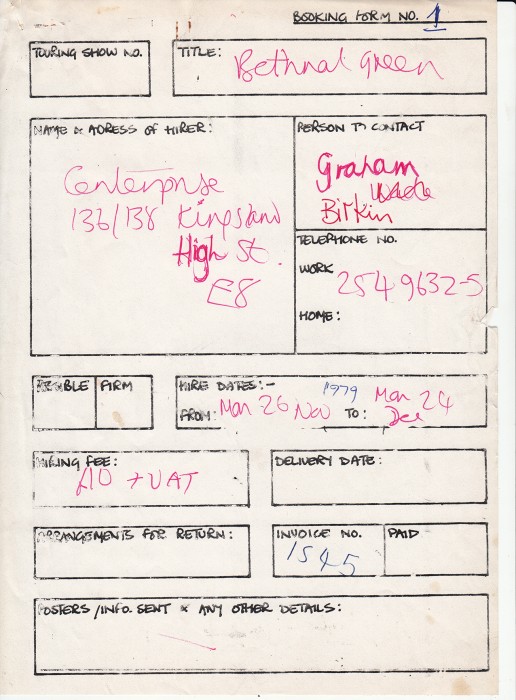 BOOKING FORM NO. 1
TOURING SHOW NO.
TITLE: Bethnal Green
NAME & ADRESS OF HIRER:
Centerprise
136/138 Kingsland
High St.
E8
PERSON TO CONTACT
Graham
Birkin
TELEPHONE NO.
WORK 254 9632-5
HOME:
FIRM
HIRE DATES:-
FROM: Mon 26 Nov 1979 TO: Mon 24
Dec
HIRING FEE:
£10 + VAT
DELIVERY DATE:
ARRANGEMENTS FOR RETURN:
INVOICE NO.
1545
PAID
POSTERS/INFO. SENT & ANY OTHER DETAILS: